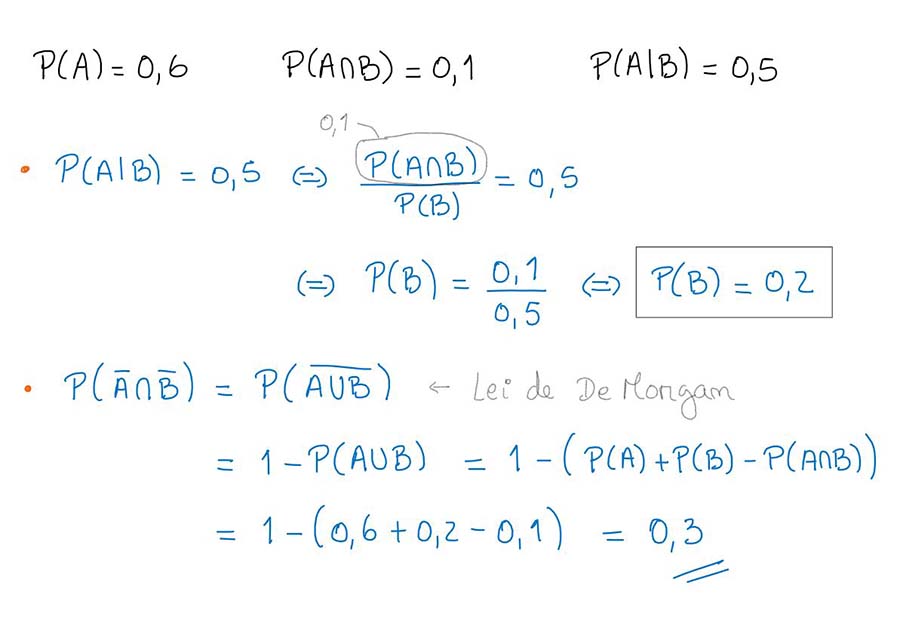 P(A) = 0,6 P(A∩B) = 0,1 P(A|B) = 0,5
0,1
• P(A|B) = 0,5 (=) P(A∩B)/P(B) = 0,5
(=) P(B) = 0,1/0,5 (=) P(B) = 0,2
• P(A̅∩B̅) = P(A̅∪̅B̅) ← Lei de De Morgan
= 1 - P(A∪B) = 1 - (P(A) + P(B) - P(A∩B))
= 1 - (0,6 + 0,2 - 0,1) = 0,3